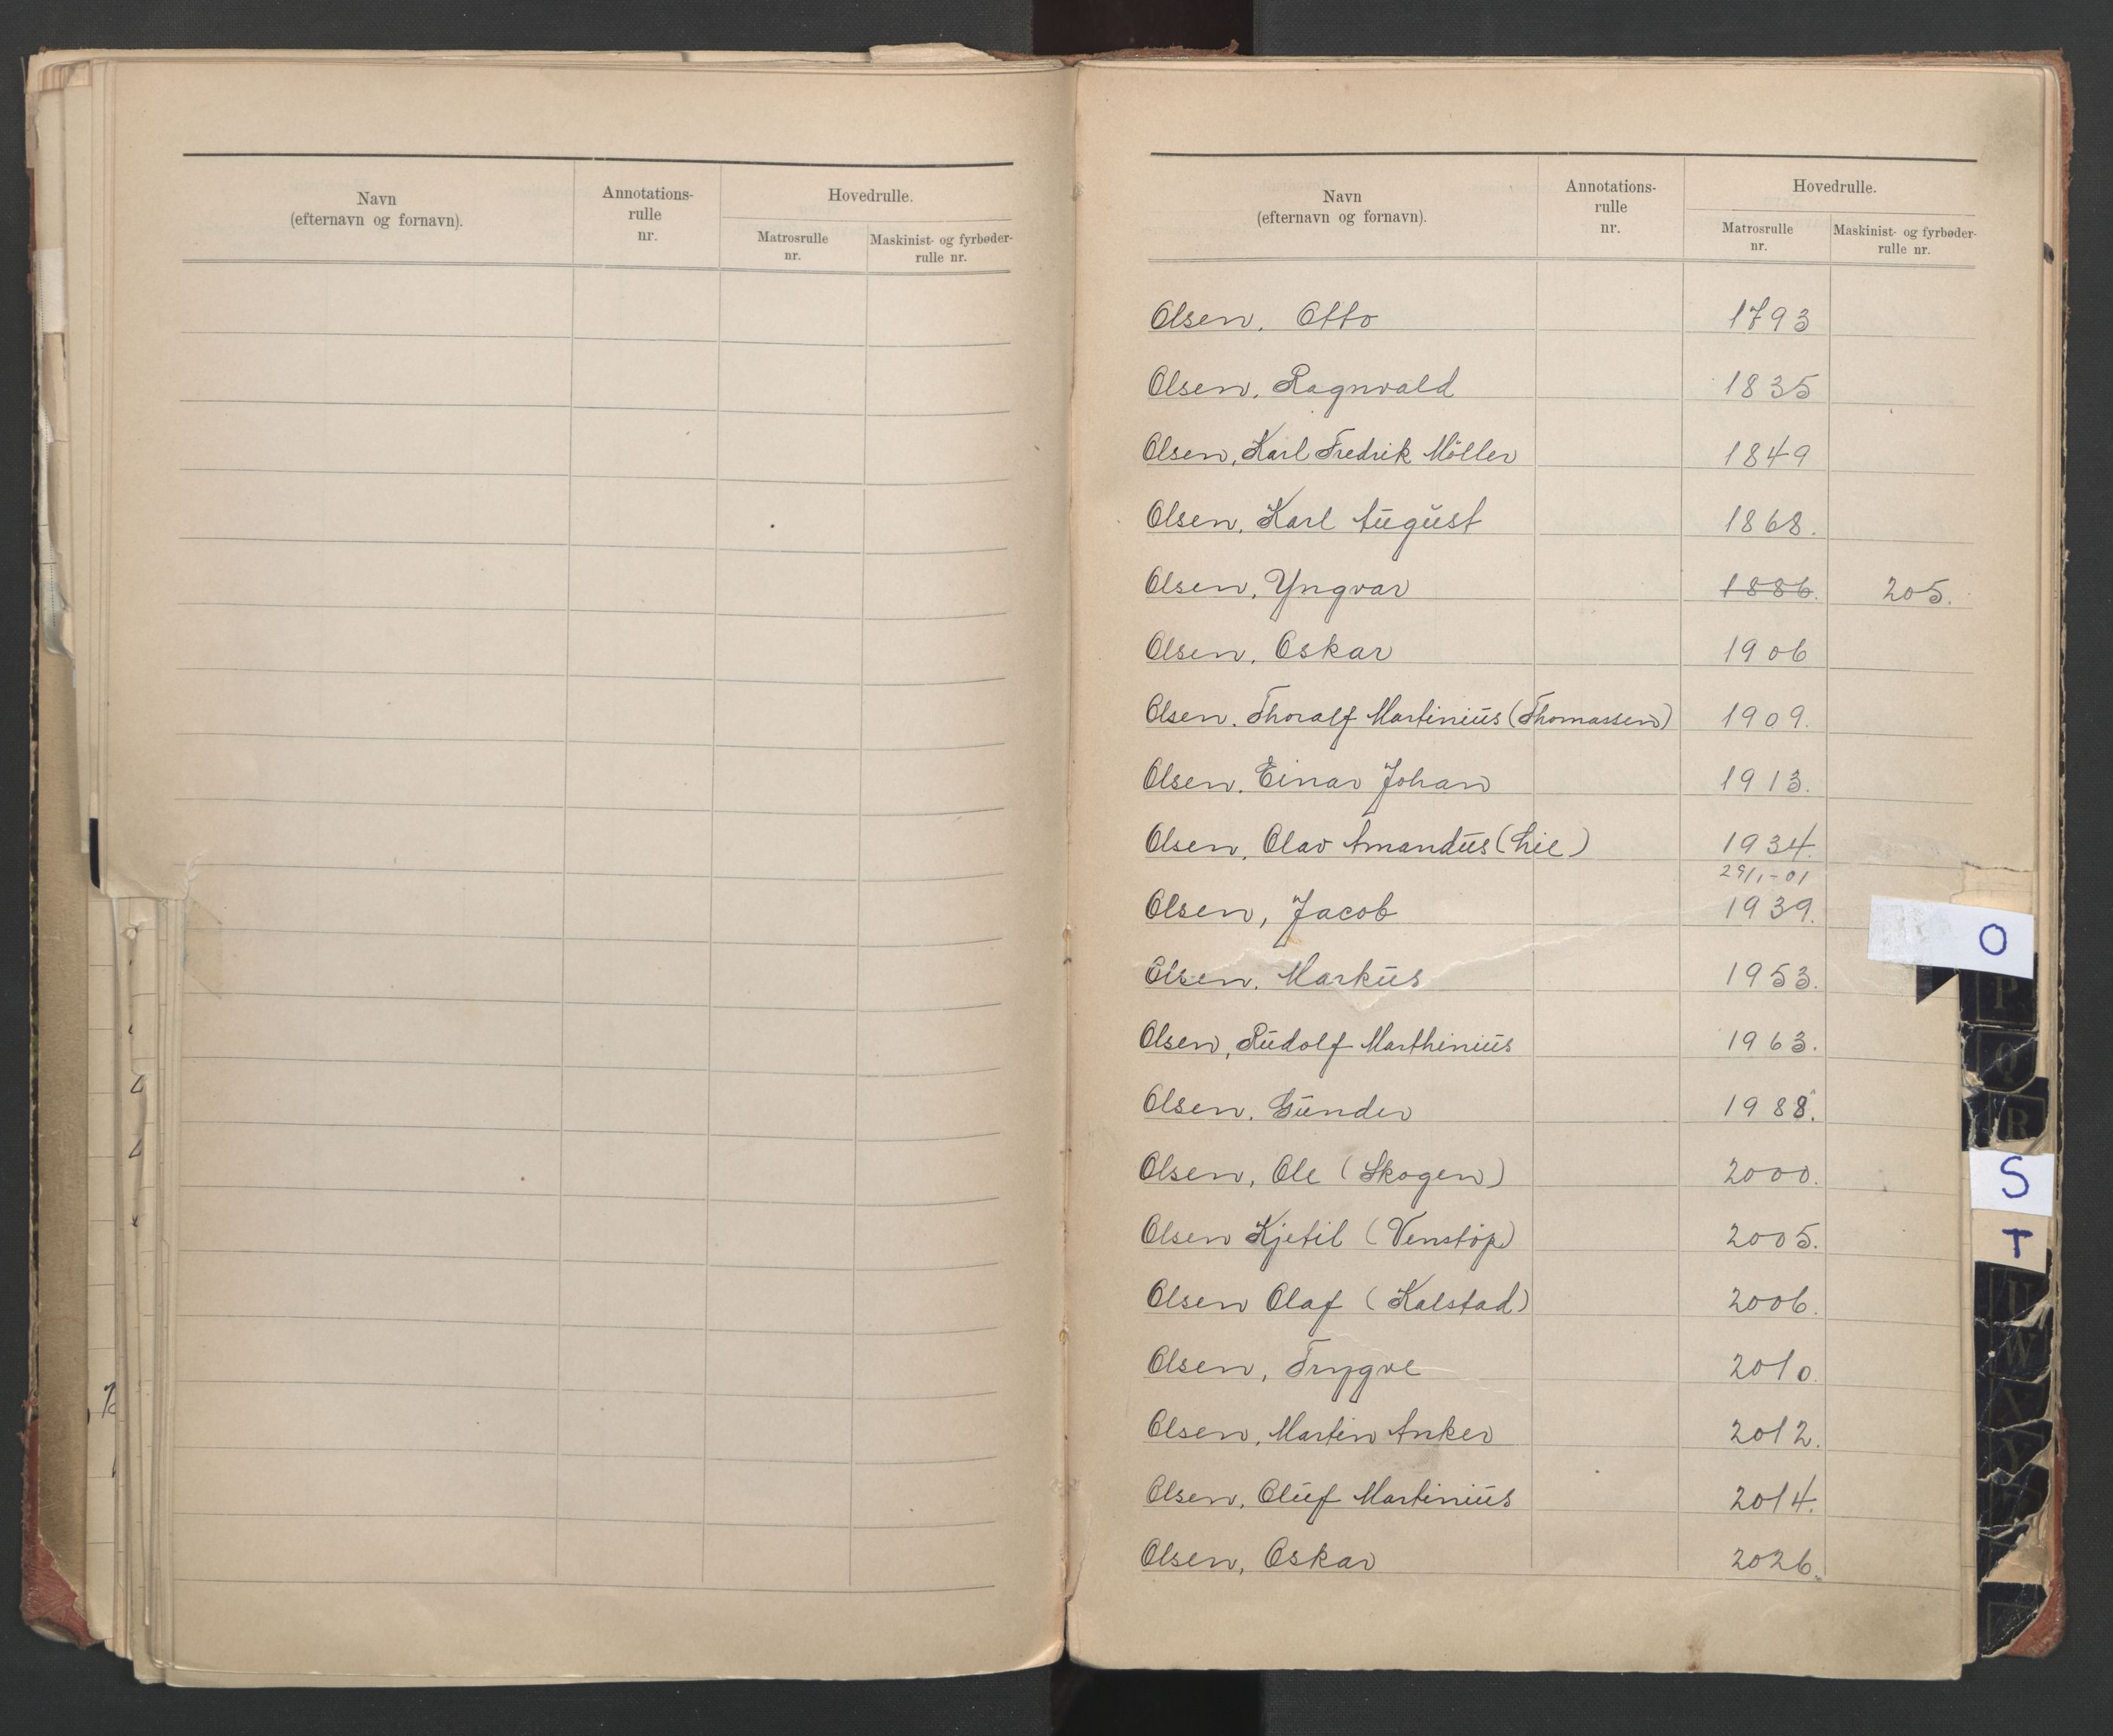 Navn
(efternavn og fornavn).
Annotations-
rulle
nr.
Hovedrulle.
Matrosrulle
nr.
Maskinist- og fyrbøder-
rulle nr.
Navn
(efternavn og fornavn).
Annotations-
rulle
nr.
Hovedrulle.
Matrosrulle
nr.
Maskinist- og fyrbøder-
rulle nr.
Olsen, Otto 1793
Olsen, Ragnvald 1835
Olsen, Karl Fredrik Möller 1849
Olsen, Karl August 1868.
Olsen, Yngvar 1886. 205.
Olsen, Oskar 1906
Olsen. Thoralf Martinius (Thomassen) 1909.
Olsen. Einar Johan 1913.
Olsen, Olav Amandus (Lie) 1934.
29/1-01
Olsen, Jacob 1939.
Olsen. Markus 1953.
Olsen, Rudolf Marthinius 1963.
Olsen. Gunder 1988.
Olsen, Ole (Skogen) 2000.
Olsen Kjetil (Venstöp) 2005.
Olsen Olaf (Kalstad) 2006.
Olsen, Trygve 2010
Olsen, Martin Anker 2012.
Olsen, Oluf Martinius 2014.
Olsen, Oskar 2026.
O
P
Q
R
S
T
U
W
X
Y